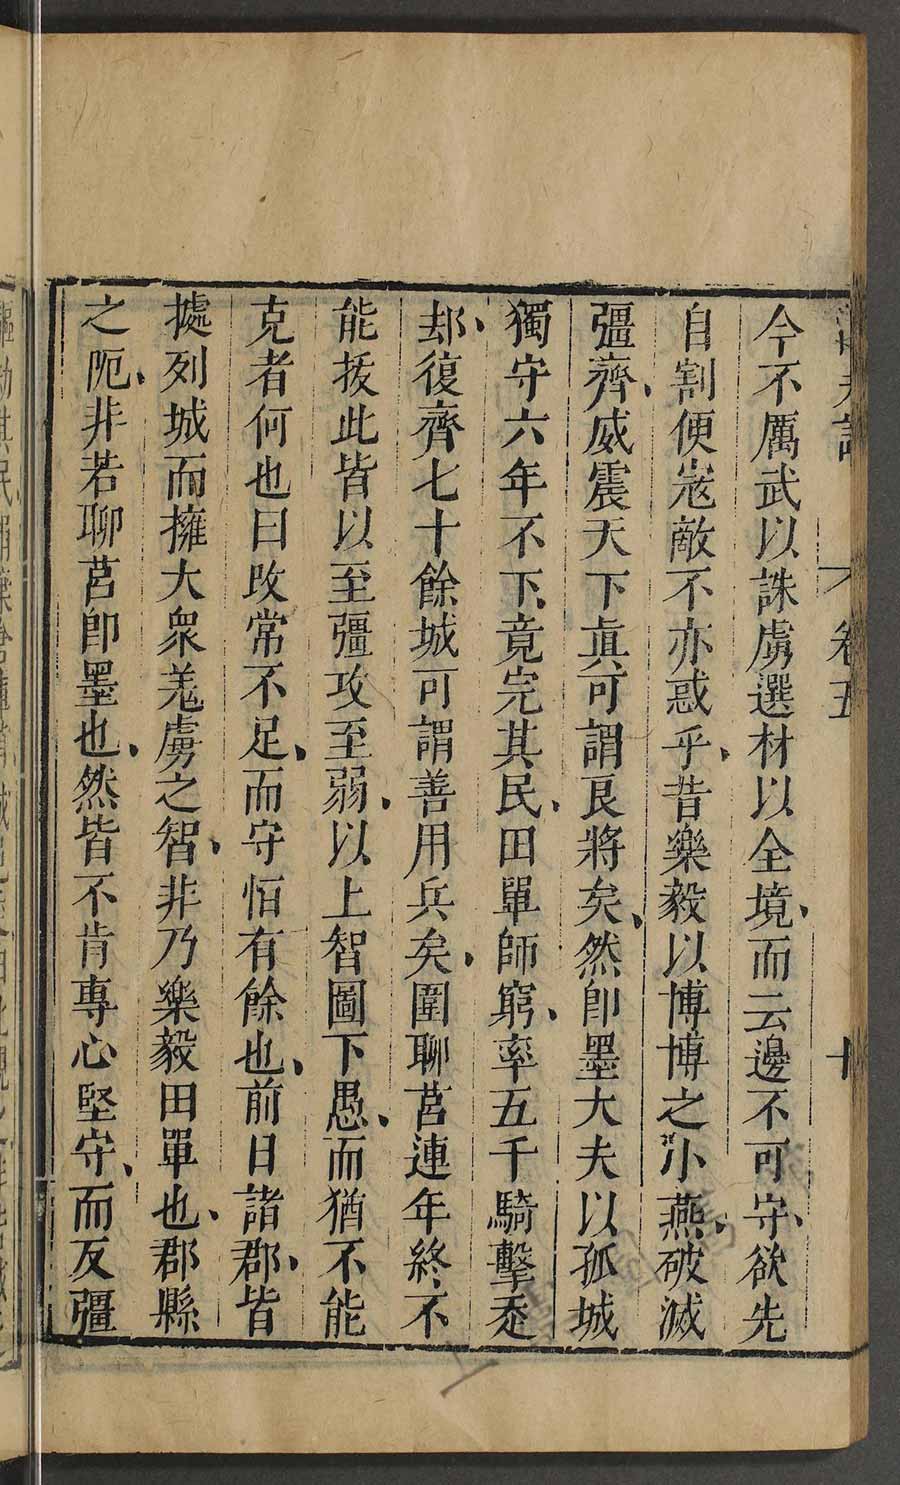 今不厲武以誅虜選材以全境而云邊不可守欲先
自割便宼敵不亦惑乎昔樂毅以博博之小燕破滅
彊齊威震天下真可謂良將矣然卽墨大夫以孤城
獨守六年不下竟完其民田單師窮率五千騎擊走
却復齊七十餘城可謂善用兵矣圍聊莒連年終不
能拔此皆以至彊攻至弱以上智圖下愚而猶不能
克者何也曰攻常不足而守恒有餘也前日諸郡皆
據列城而擁大衆羗虜之智非乃樂毅田單也郡縣
之阨非若聊莒卽墨也然皆不肯專心堅守而反彊
卷五
十